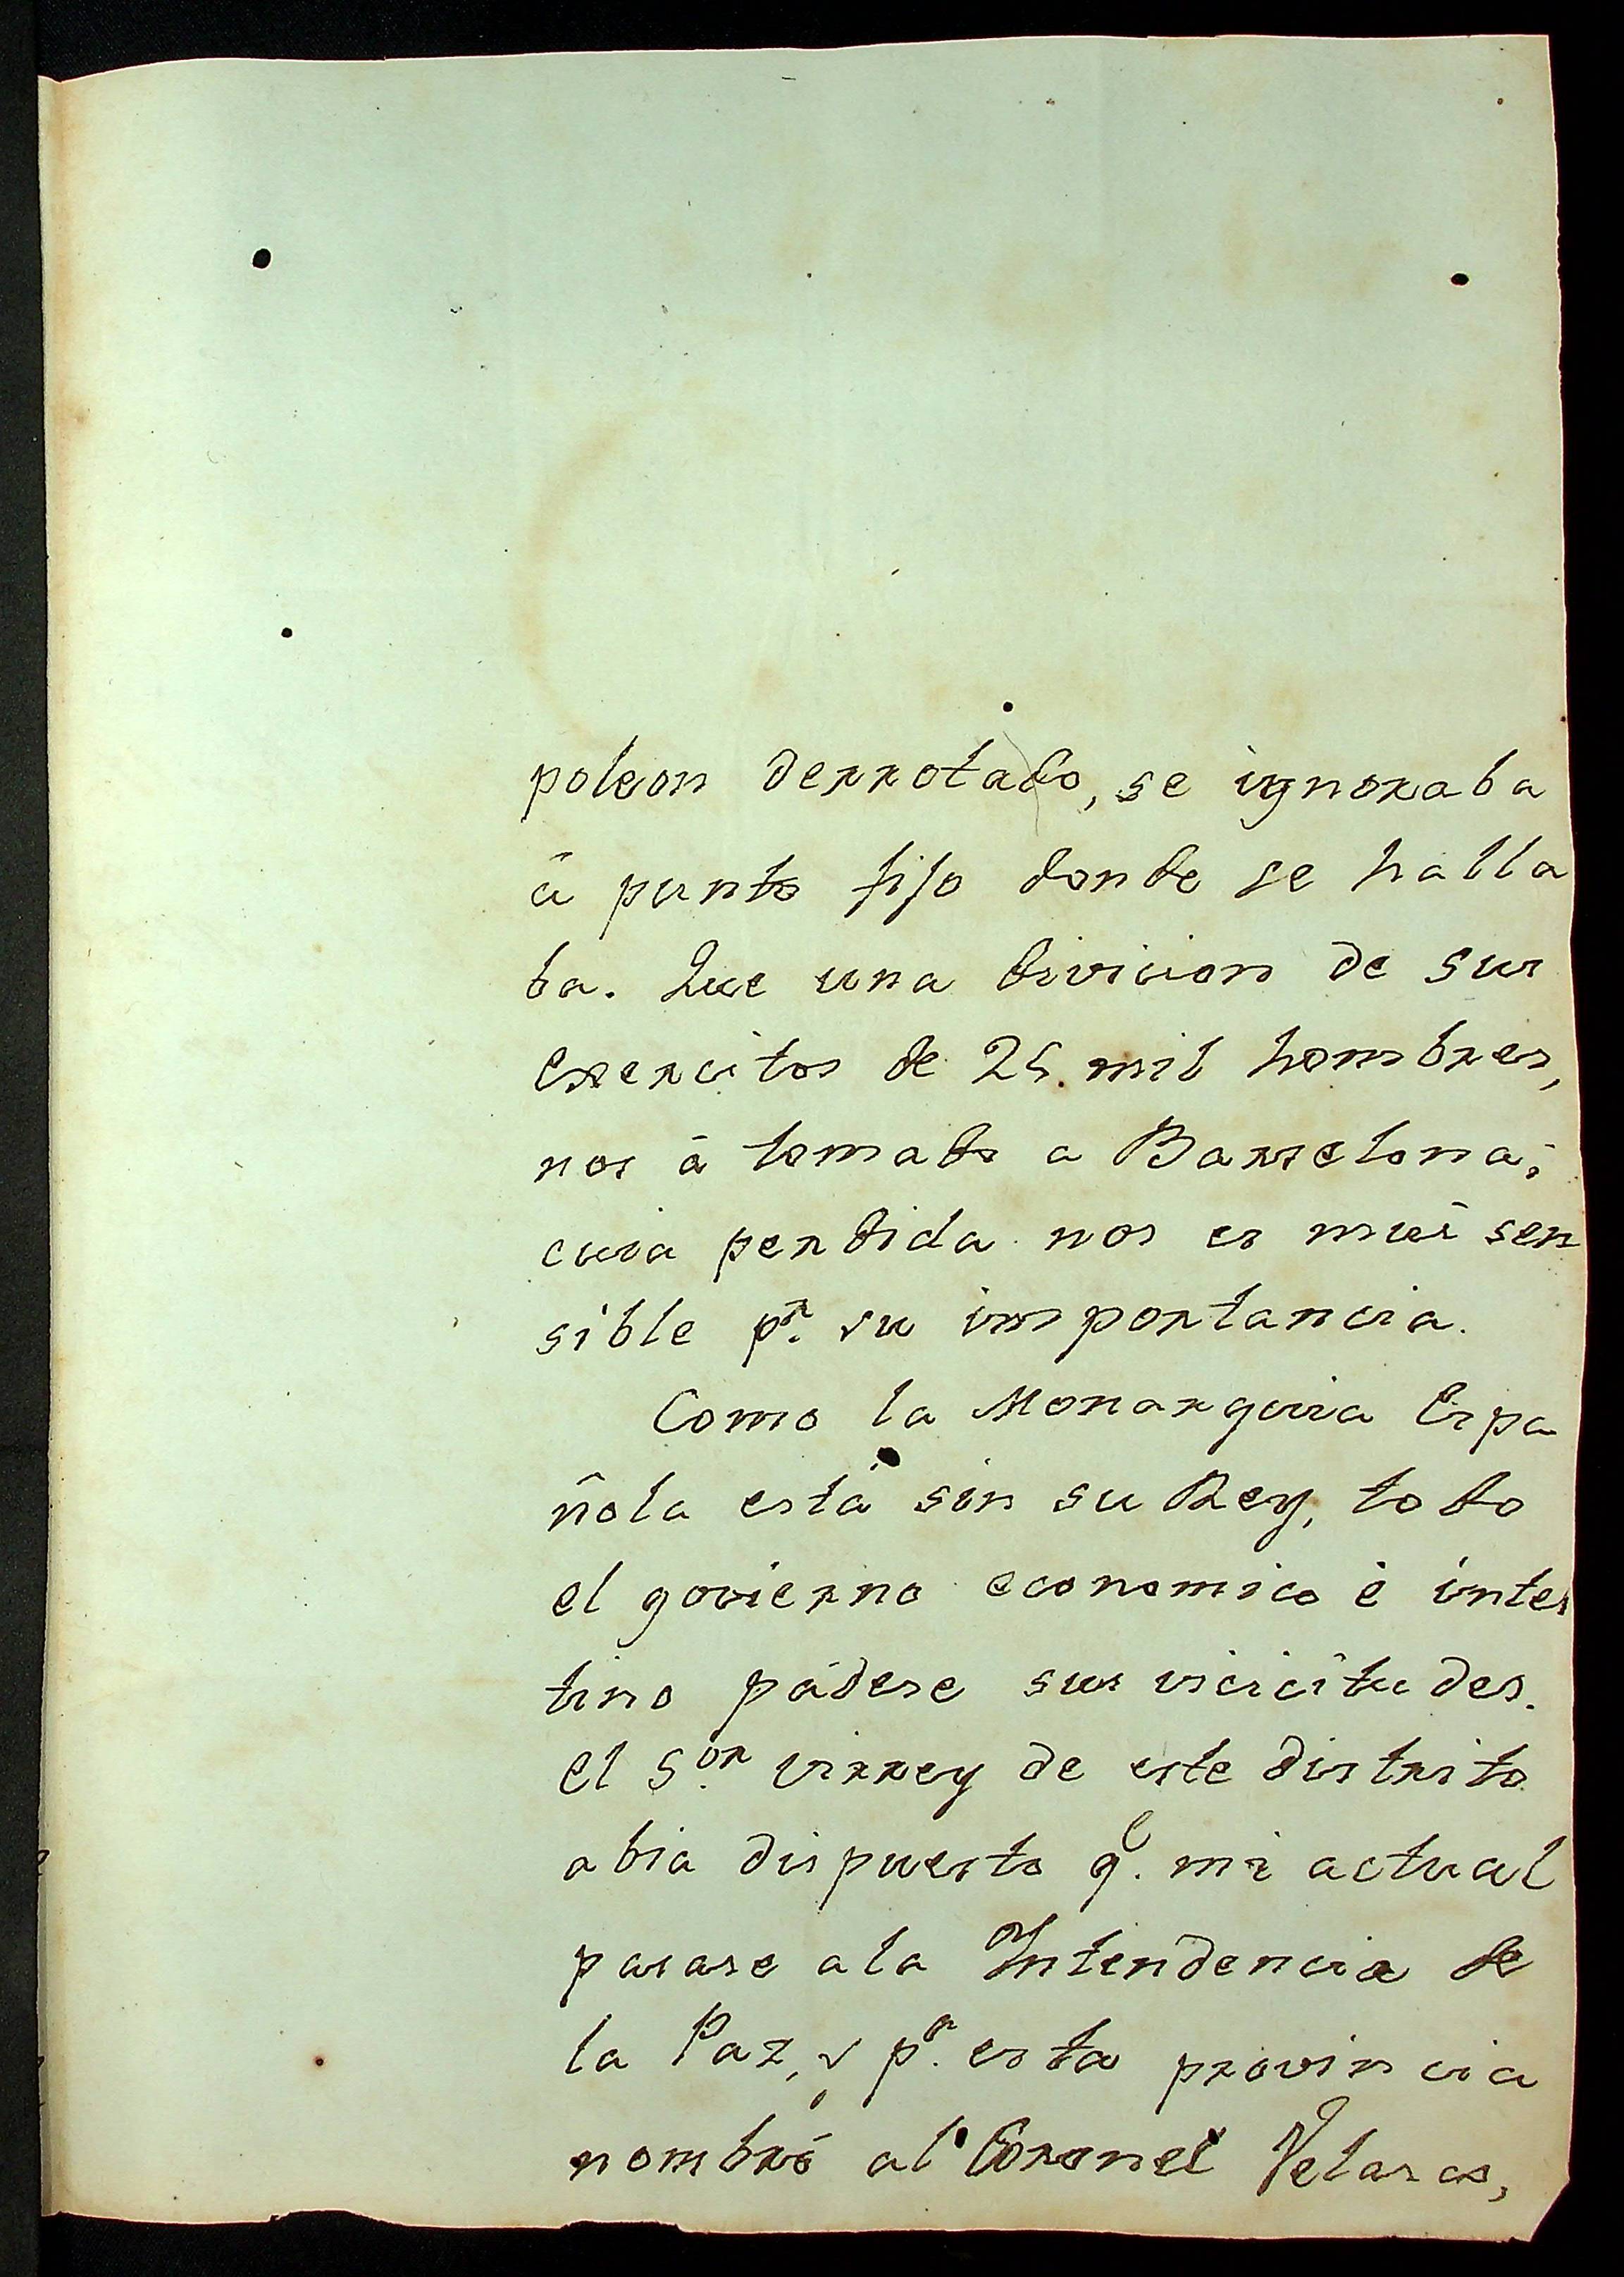 poleon derrotado, se ignoraba
á punto fijo donde se halla
ba. Que una divicion de sus
exercitos de 25. mil hombres,
nos á tomado a Barselona;
cuia perdida nos es mui sen
sible pr. su importancia.
Como la Monarquia Espa
ñola está sin su Rey, todo
el govierno economico é intes
tino padese sus vicicitudes.
el Sor. virrey de este distrito
abia dispuesto qe. mi actual
pasase a la Intendencia de
la Paz, y pa. esta provincia
nombró al Coronel Velasco,